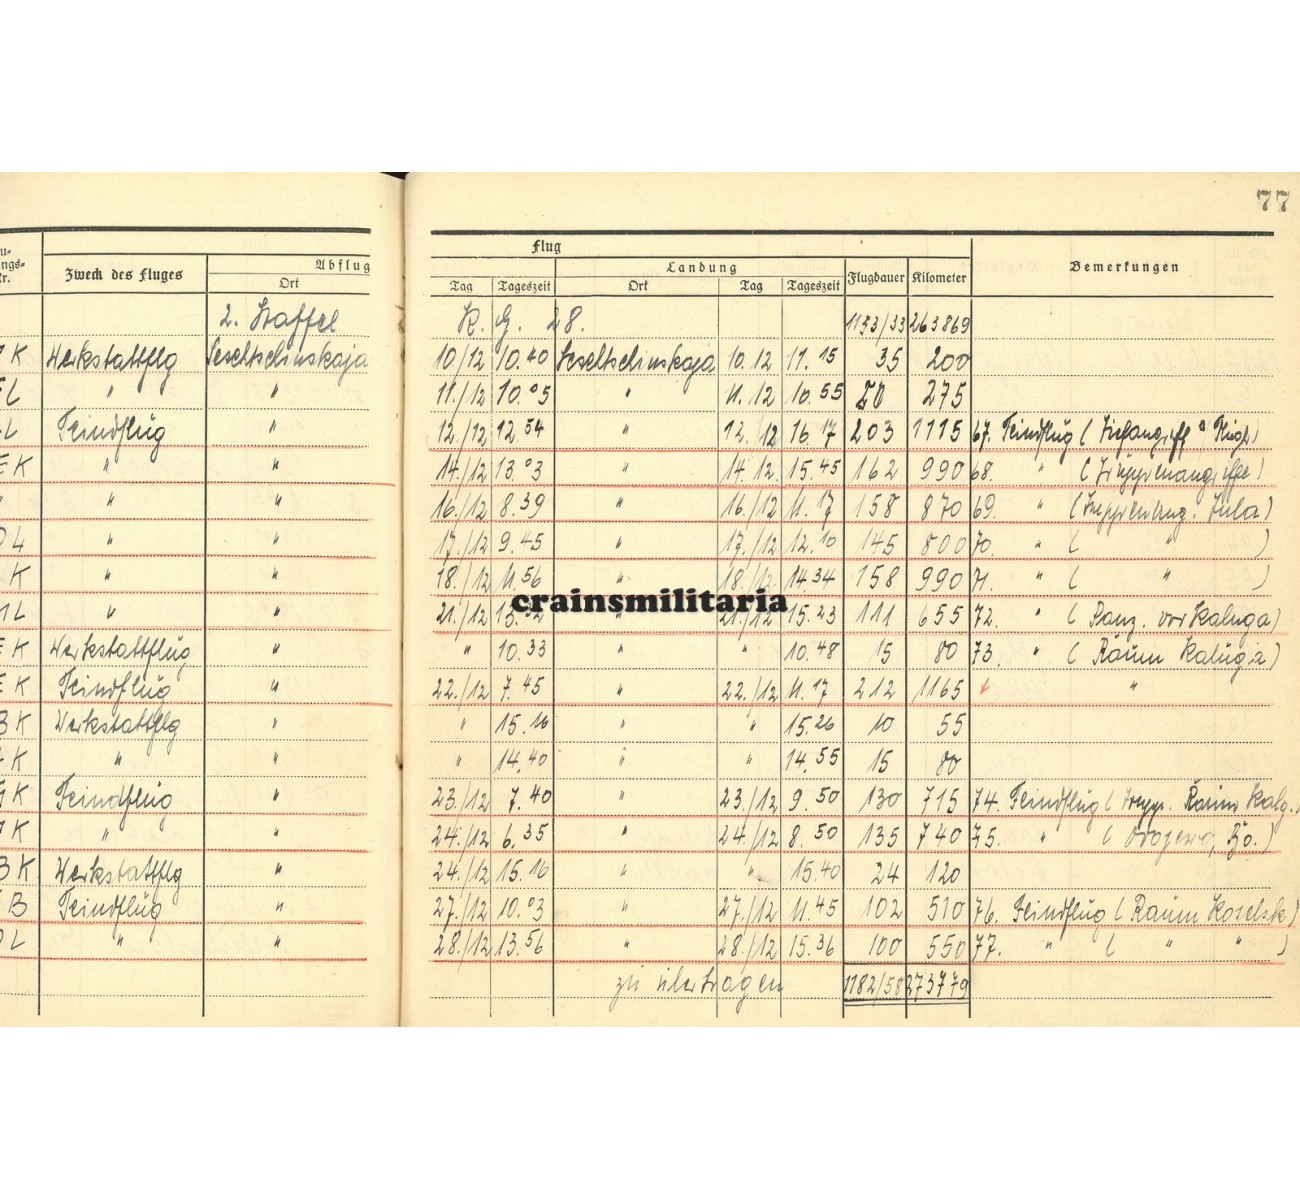 77
u-
ngs-
r.
Zweck des Fluges
Abflug
Ort
Flug
Landung
Tag Tageszeit Ort Tag Tageszeit Flugdauer Kilometer Bemerkungen
2. Staffel K. G. 28. 1153/33 263869
K Werkstattflg Seschtschinskaja 10/12 10.40 Seschtschinskaja 10.12 11.15 35 200
L " " 11./12 10.05 " 11.12 10.55 50 275
L Feindflug " 12./12 12.54 " 12./12 16.17 203 1115 67. Feindflug ( Tiefangriff
EK " " 14./12 13.03 " 14.12. 15.45 162 990 68. " ( Truppenangriffe)
" " " 16./12 8.39 " 16./12 11.17 158 870 69. " (Truppenang. Tula)
DL " " 17./12 9.45 " 17./12 12.10 145 800 70. " ( " )
K " " 18./12 11.56 " 18./12 14.34 158 990 71. " ( " )
L " " 21./12 " 21./12 15.23 111 655 72. " ( Panz. vor Kaluga)
crainsmilitaria
EK Werkstattflug " " 10.33 " " 10.48 15 80 73. " ( Raum Kaluga)
EK Feindflug " 22./12 7.45 " 22./12 11.17 212 1165 "
BK Werkstattflg " " 15.16 " " 15.26 10 55
K " " " 14.40 " " 14.55 15 80
K Feindflug " 23./12 7.40 " 23./12 9.50 130 715 74. Feindflug ( Trupp. Raum Kalg.)
K " " 24./12 6.35 " 24./12 8.50 135 740 75. " (
BK Werkstattflg " 24./12 15.16 " " 15.40 24 120
B Feindflug " 27./12 10.03 " 27./12 11.45 102 510 76. Feindflug ( Raum Koselsk)
DL " " 28./12 13.56 " 28./12 15.36 100 550 77. " ( " " )
zu übertragen 1182/58 273779